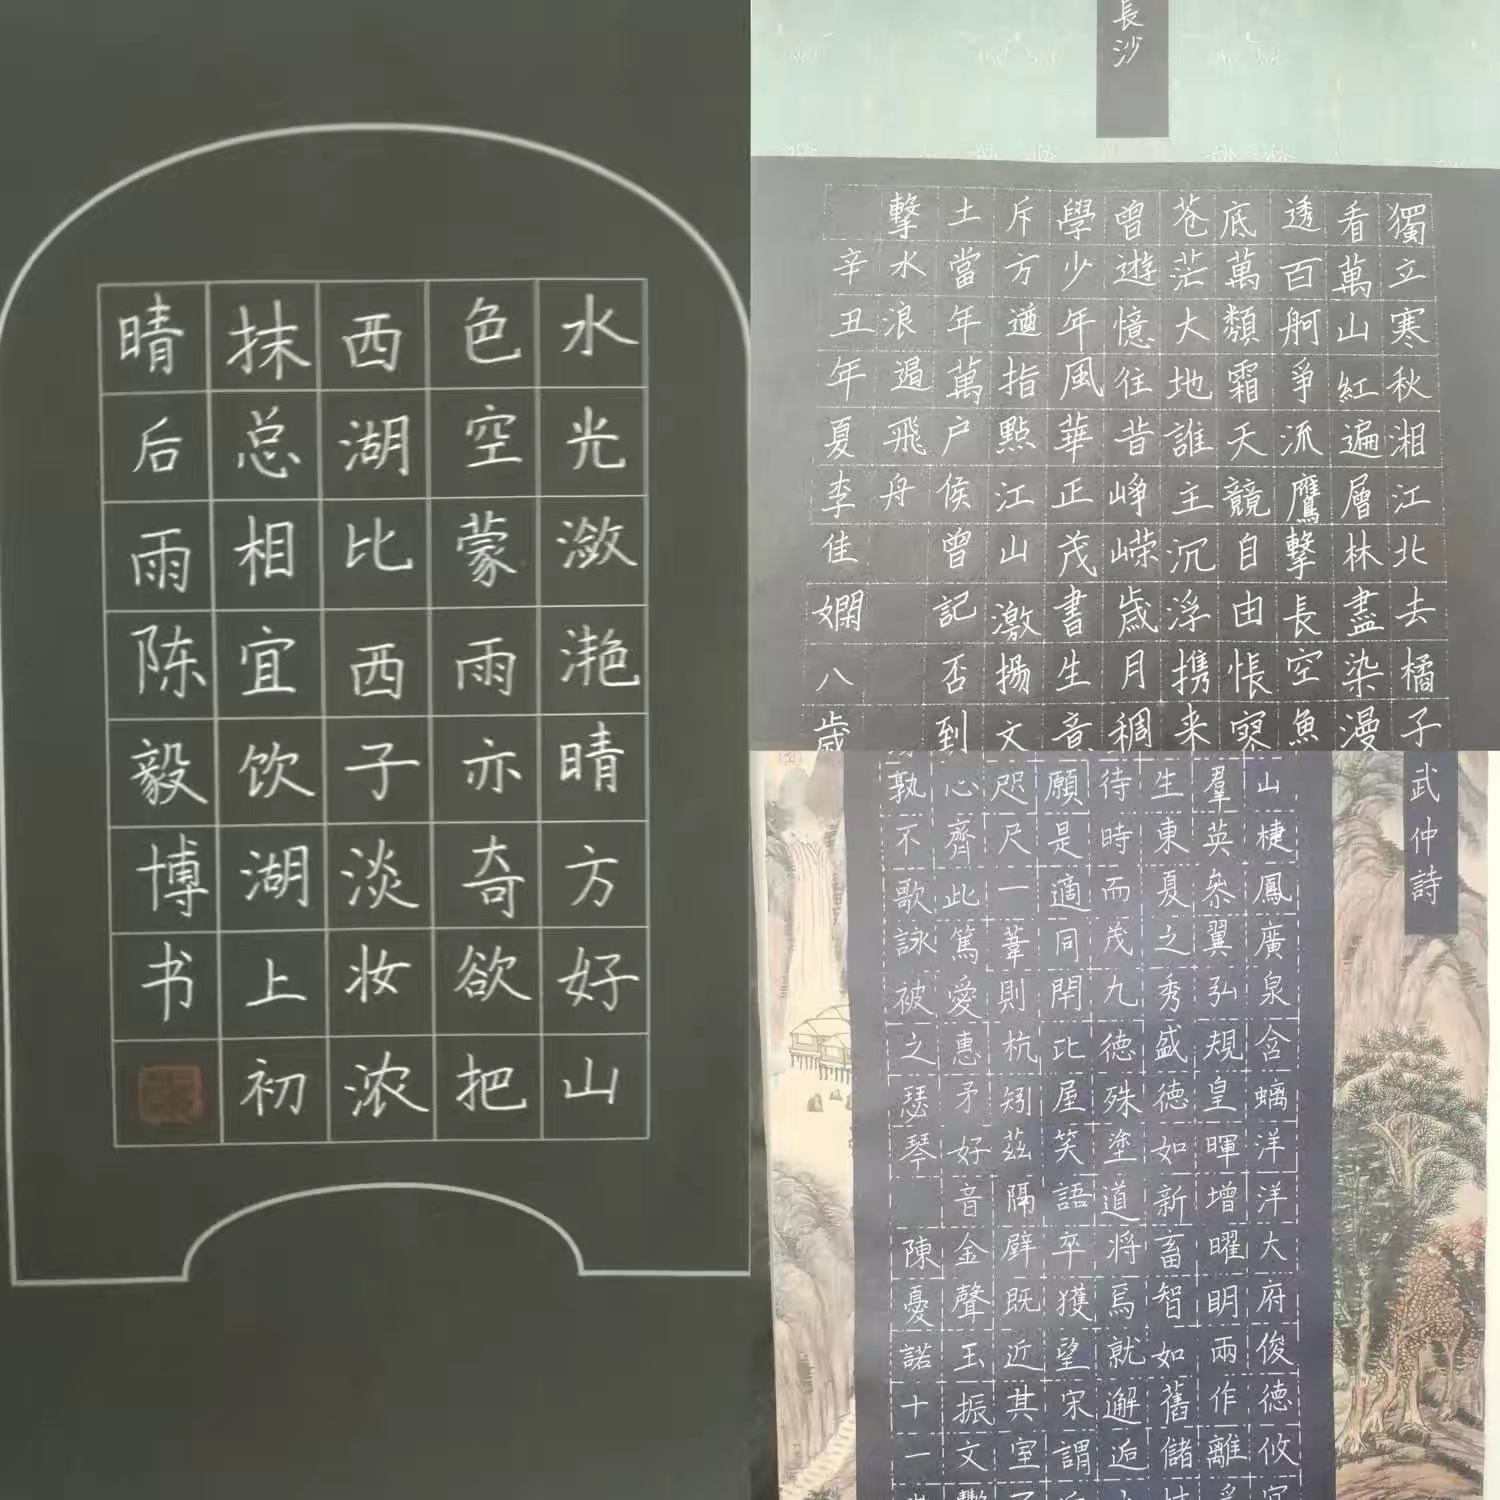 水光潋滟晴方好山
色空蒙雨亦奇欲把
西湖比西子淡妆浓
抹总相宜饮湖上初
晴后雨陈毅博书
長沙
獨立寒秋湘江北去橘子
看萬山紅遍層林盡染漫
透百舸爭流鷹擊長空魚
底萬類霜天競自由悵寥
苍茫大地誰主沉浮携来
曾遊憶往昔崢嵘歲月稠
學少年風華正茂書生意
斥方遒指點江山激揚文
土當年萬户侯曾記否到
擊水浪遏飛舟
辛丑年夏李佳嫻八歲
武仲詩
山棲鳳廣泉含螭洋洋大府俊德攸
羣英叅翼弘規皇暉增曜明兩作離
生東夏之秀盛德如新畜智如舊儲
待時而茂九德殊塗道将焉就邂逅
願是適同閈比屋笑語卒獲望宋謂
咫尺一葦則杭矧茲隔壁既近其室
心齊此篤愛惠矛好音金聲玉振文
孰不歌詠被之瑟琴
陳憂諾十一